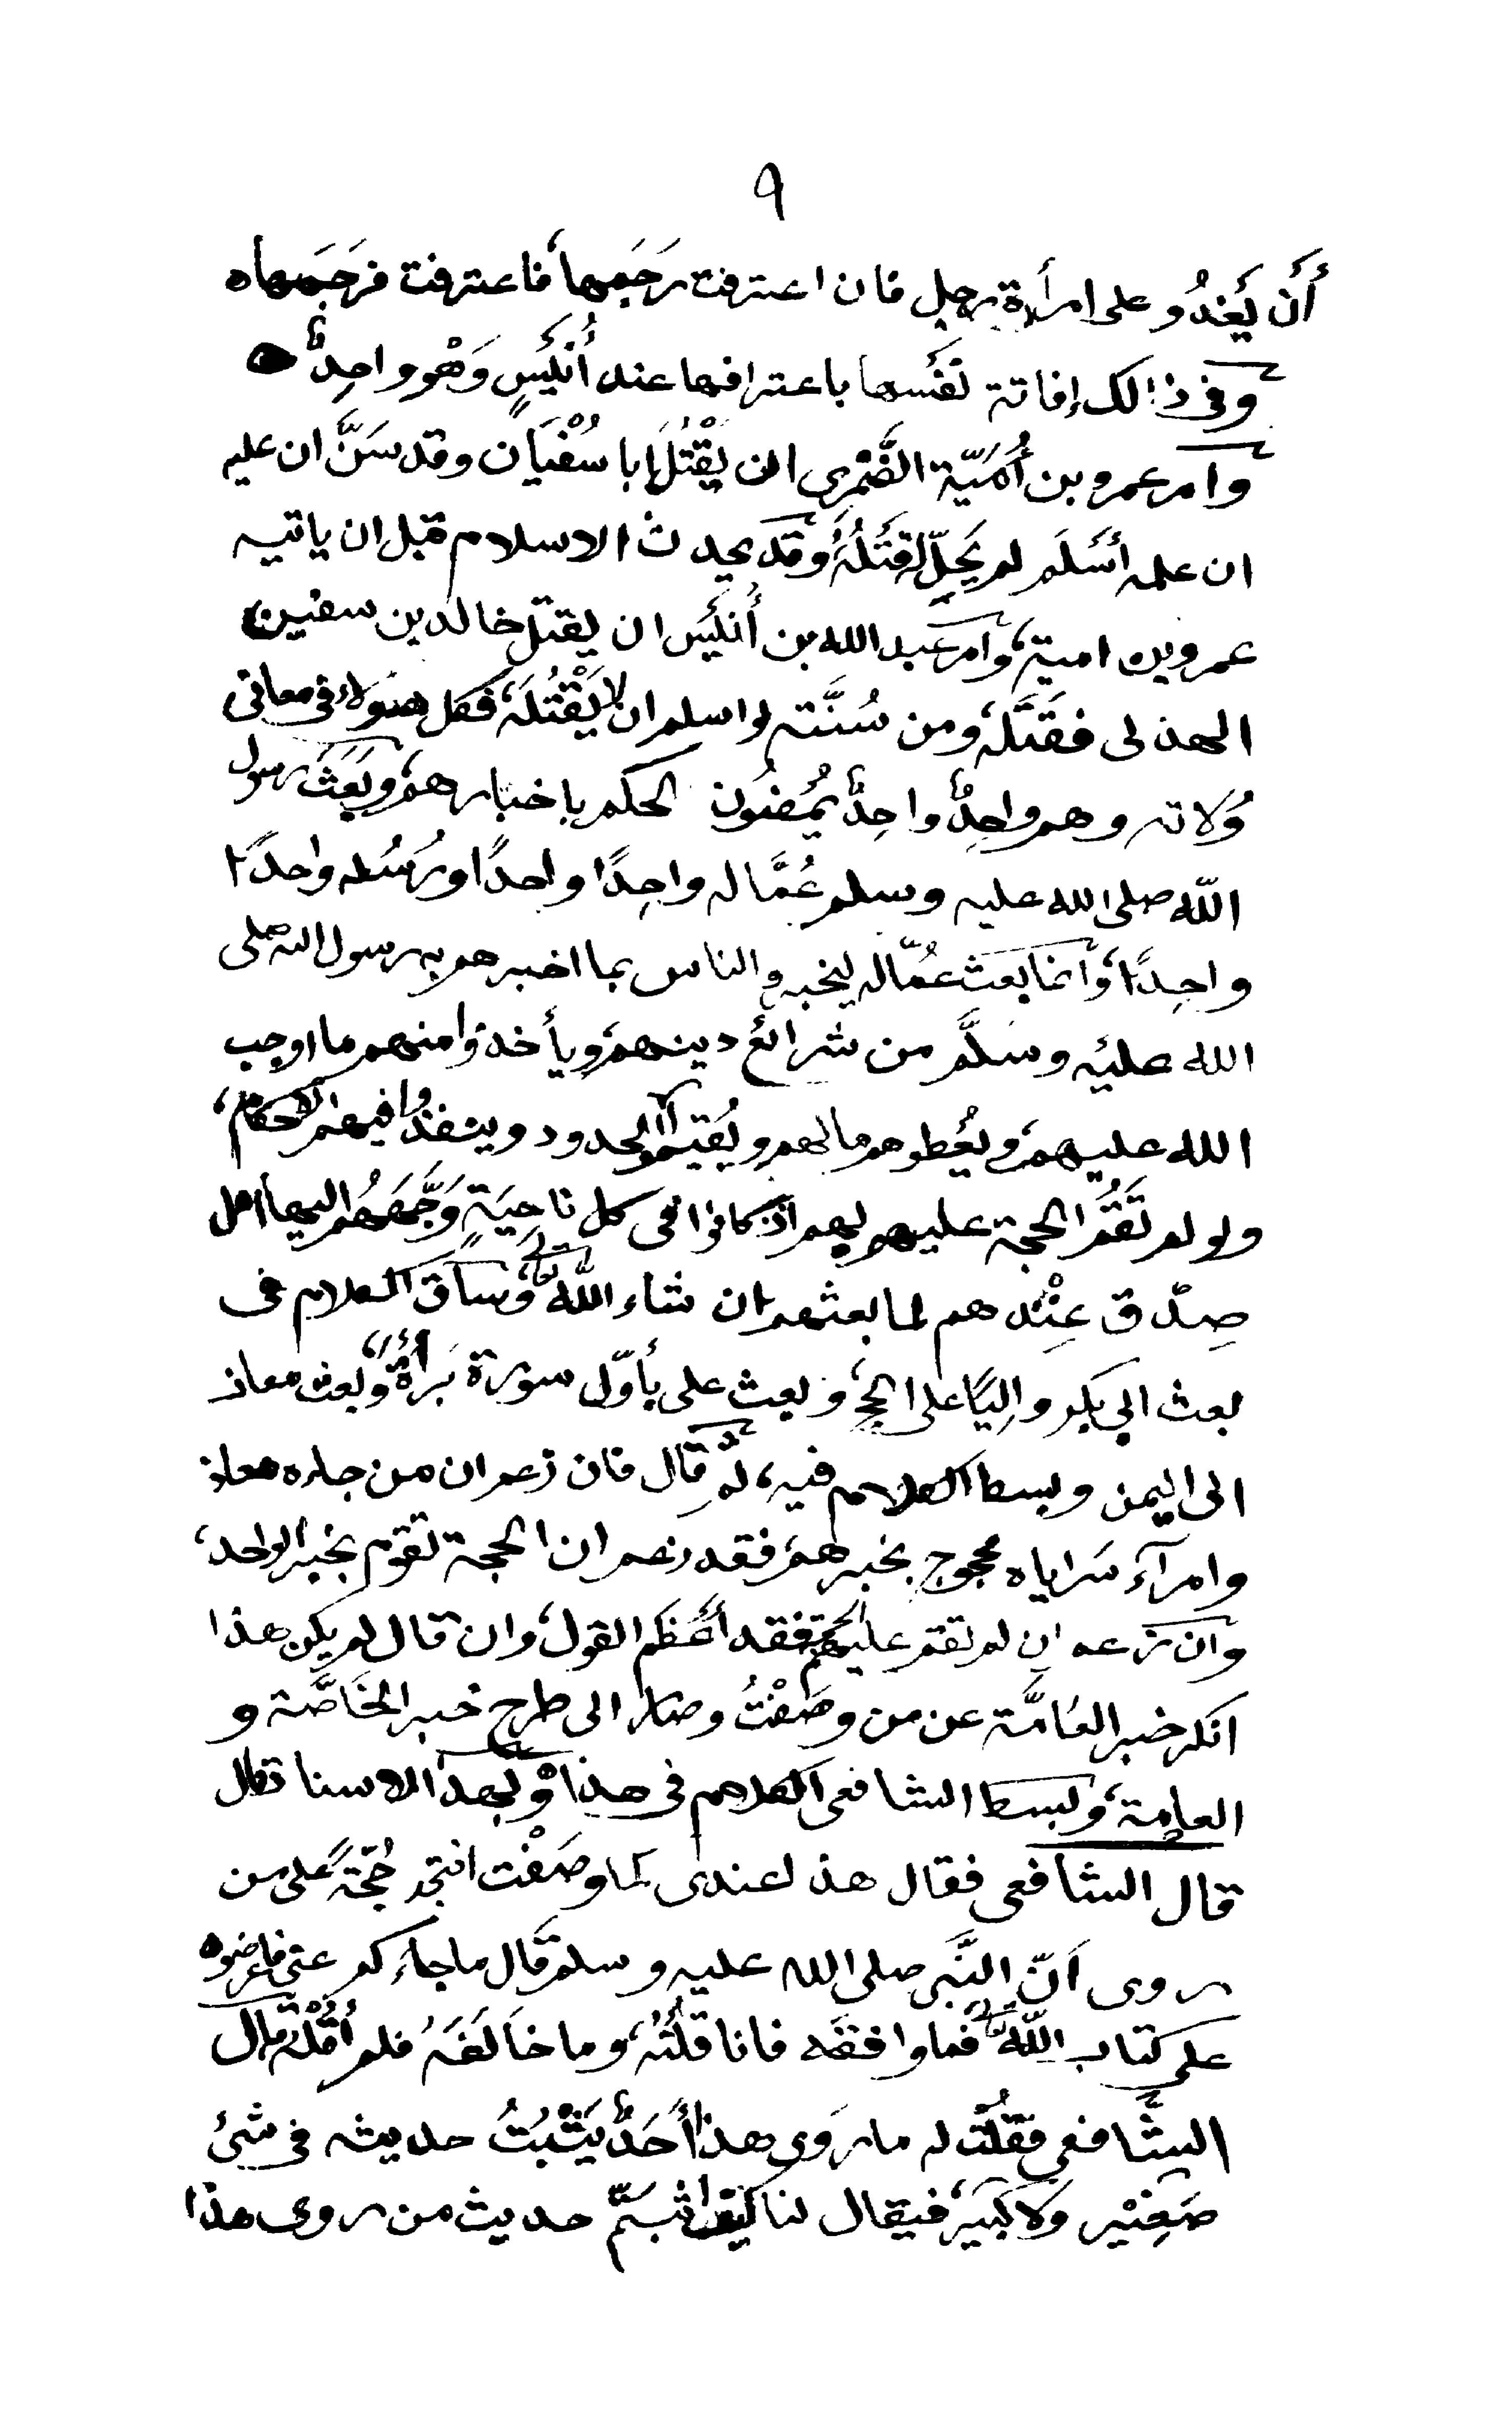 ٩
أَن يَغدُو على امرأة رجل فان اعترفت رَجَمها، فاعترفت فرَجَمها
وفي ذالك إفاتة نفَسها باعترافها عند أُنَيسٍ وَهْو واحِدٌ
وامر عمرو بن أُمَيّة الضَّمْري ان يَقْتُلَ ابا سُفْيَان وقد سَنَّ ان عليه
ان علمه أسَلَم لم يَحِلّ له قَتَلُهُ، وقد يحدث الاسلام قبل ان ياتيه
عمرو بن امية، وامر عبد الله بن أُنيَس ان يقتل خالد بن سفين
الهذلى فقَتَله، ومن سُنَّته لو اسلم ان لا يَقْتُلَه، فكل هؤلاء فى معانى
وُلاته وهم واحِدٌ واحِدٌ يُمُضُون الحكم باخبارهم، وبَعَث رسول
اللّه صلى الله عليه وسلم عُمَّاله واحِدًا واحدًا ورُسُله واحدًا
واحِدًا، وانما بعَث عُمّاله ليخبروا الناس بما اخبرهم به رسول الله صلى
الله عليَه وسَلَّم من شرائع دينهم، ويأخذوا منهم ما اوجب
الله عليهم، ويُعطوهم مالهم ويُقيموا الحدود وينفذوا فيهم الاحكام،
ولو لم تَقُم الحجة عليهم بهم اذ كانوا فى كل ناحِيَةٍ وَجَّهَهُم اليها اهل
صِدْق عِنْدهم لما بعثهم ان شاء اللّه تعالى، وسَاق الكلام فى
بعث ابي بكر والِيًا على الحج، وبعث على بأوّل سورة بَرأة، وبعث معاذ
الى اليمن وبسط الكلام فيه، ثم قال فان زعم ان من جاءه معاذ
وامرآء سَراياه محجوج بخبرهم فقد زعم ان الحجة تقوم بخبر الواحد،
وان زعم ان لم تقم عليهم الحجة فقد أعَظم القول، وان قال لم يكن هذا
انكر خبر العامَّة عن من وصَفْتُ وصار الى طرح خبر الخاصَّة و
العامة، وبسط الشافعى الكلام فى هذا، وبهذا الاسناد قال
قال الشافعى فقال هذا عندى كما وصَفْت افتجد حُجّةً على من
روى اَنّ النَّبى صلى الله عليه وسلم قال ما جاءكم عني فاعرضوه
على كتاب اللّه تعالى فما وافقَه فانا قلَتُه، وما خالَفَهُ فلم أُقُلْه، قال
الشَّافعى فَقُلت له ما رَوى هذا أَحَدٌ يَثْبُتُ حديثه فى شئ
صَغِيْر وَلا كبَير، فيقال لنا كيف اثبتم حديث من روى هذا